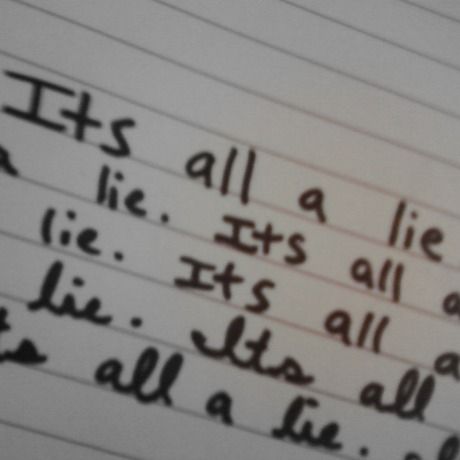 Its all a lie
a lie. Its all a
lie. Its all a
lie. Its all
ts all a lie.